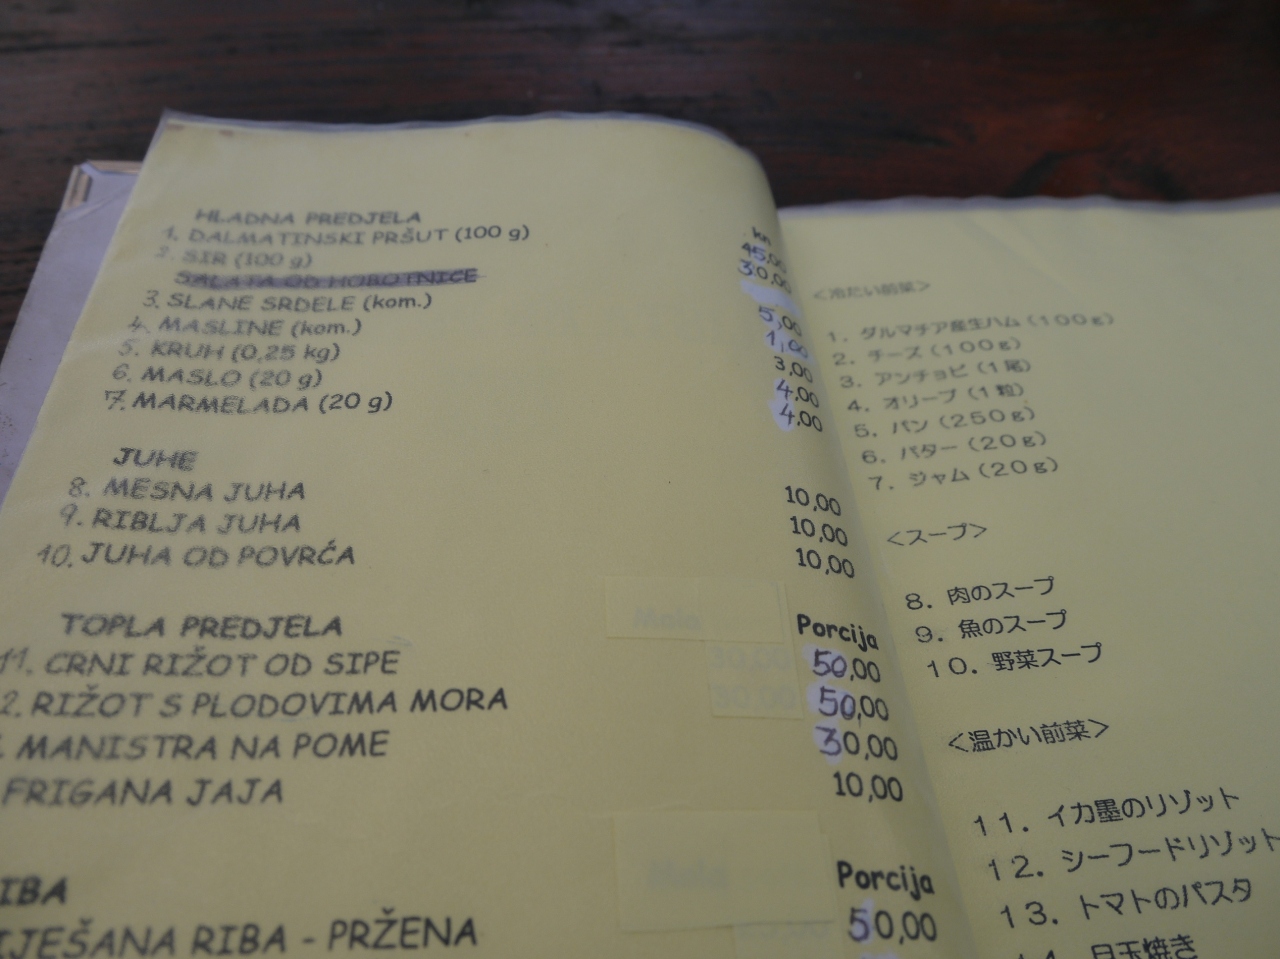 HLADNA PREDJELA
kn
1. DALMATINSKI PRŠUT (100 g) 45,00
2. SIR (100 g) 30,00
SALATA OD HOBOTNICE
3. SLANE SRDELE (kom.) 5,00
4. MASLINE (kom.) 1,00
5. KRUH (0,25 kg) 3,00
6. MASLO (20 g) 4,00
7. MARMELADA (20 g) 4,00
JUHE
8. MESNA JUHA 10,00
9. RIBLJA JUHA 10,00
10. JUHA OD POVRĆA 10,00
TOPLA PREDJELA Porcija
11. CRNI RIŽOT OD SIPE 50,00
2. RIŽOT S PLODOVIMA MORA 50,00
. MANISTRA NA POME 30,00
FRIGANA JAJA 10,00
IBA Porcija
IJEŠANA RIBA - PRŽENA 50,00
<冷たい前菜>
1. ダルマチア産生ハム(100g)
2. チーズ(100g)
3. アンチョビ(1尾)
4. オリーブ(1粒)
5. パン(250g)
6. バター(20g)
7. ジャム(20g)
<スープ>
8. 肉のスープ
9. 魚のスープ
10. 野菜スープ
<温かい前菜>
11. イカ墨のリゾット
12. シーフードリゾット
13. トマトのパスタ
14. 目玉焼き